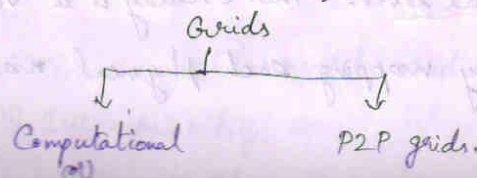 Grids
Computational P2P grids.
(or)